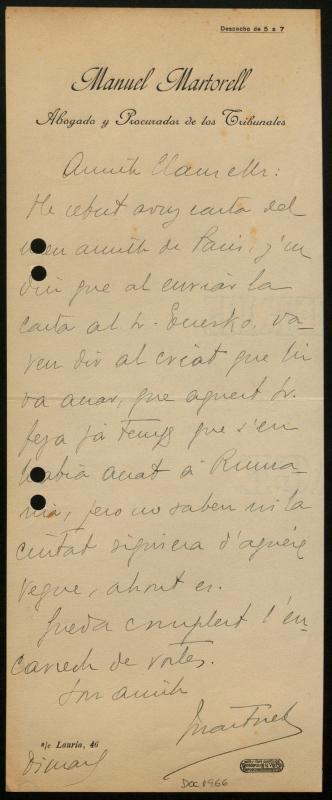 Despacho de 5 a 7
Manuel Martorell
Abogado y Procurador de los Tribunales
Amich Clausells:
He rebut avuy carta del
meu amich de Paris, y'm
diu que al enviar la
carta al Sr. Enesko, va-
ren dir al criat que hi
va anar, que aquest Sr.
feya ja temps que s'en
habia anat á Ruma-
nia, pero no saben ni la
ciutat siquiera d'aqueix
regne, ahont es.
Queda complert l'en-
carrech de vostes.
Son amich
Martorell
s/c Lauria, 46
Dimars
Doc 1966